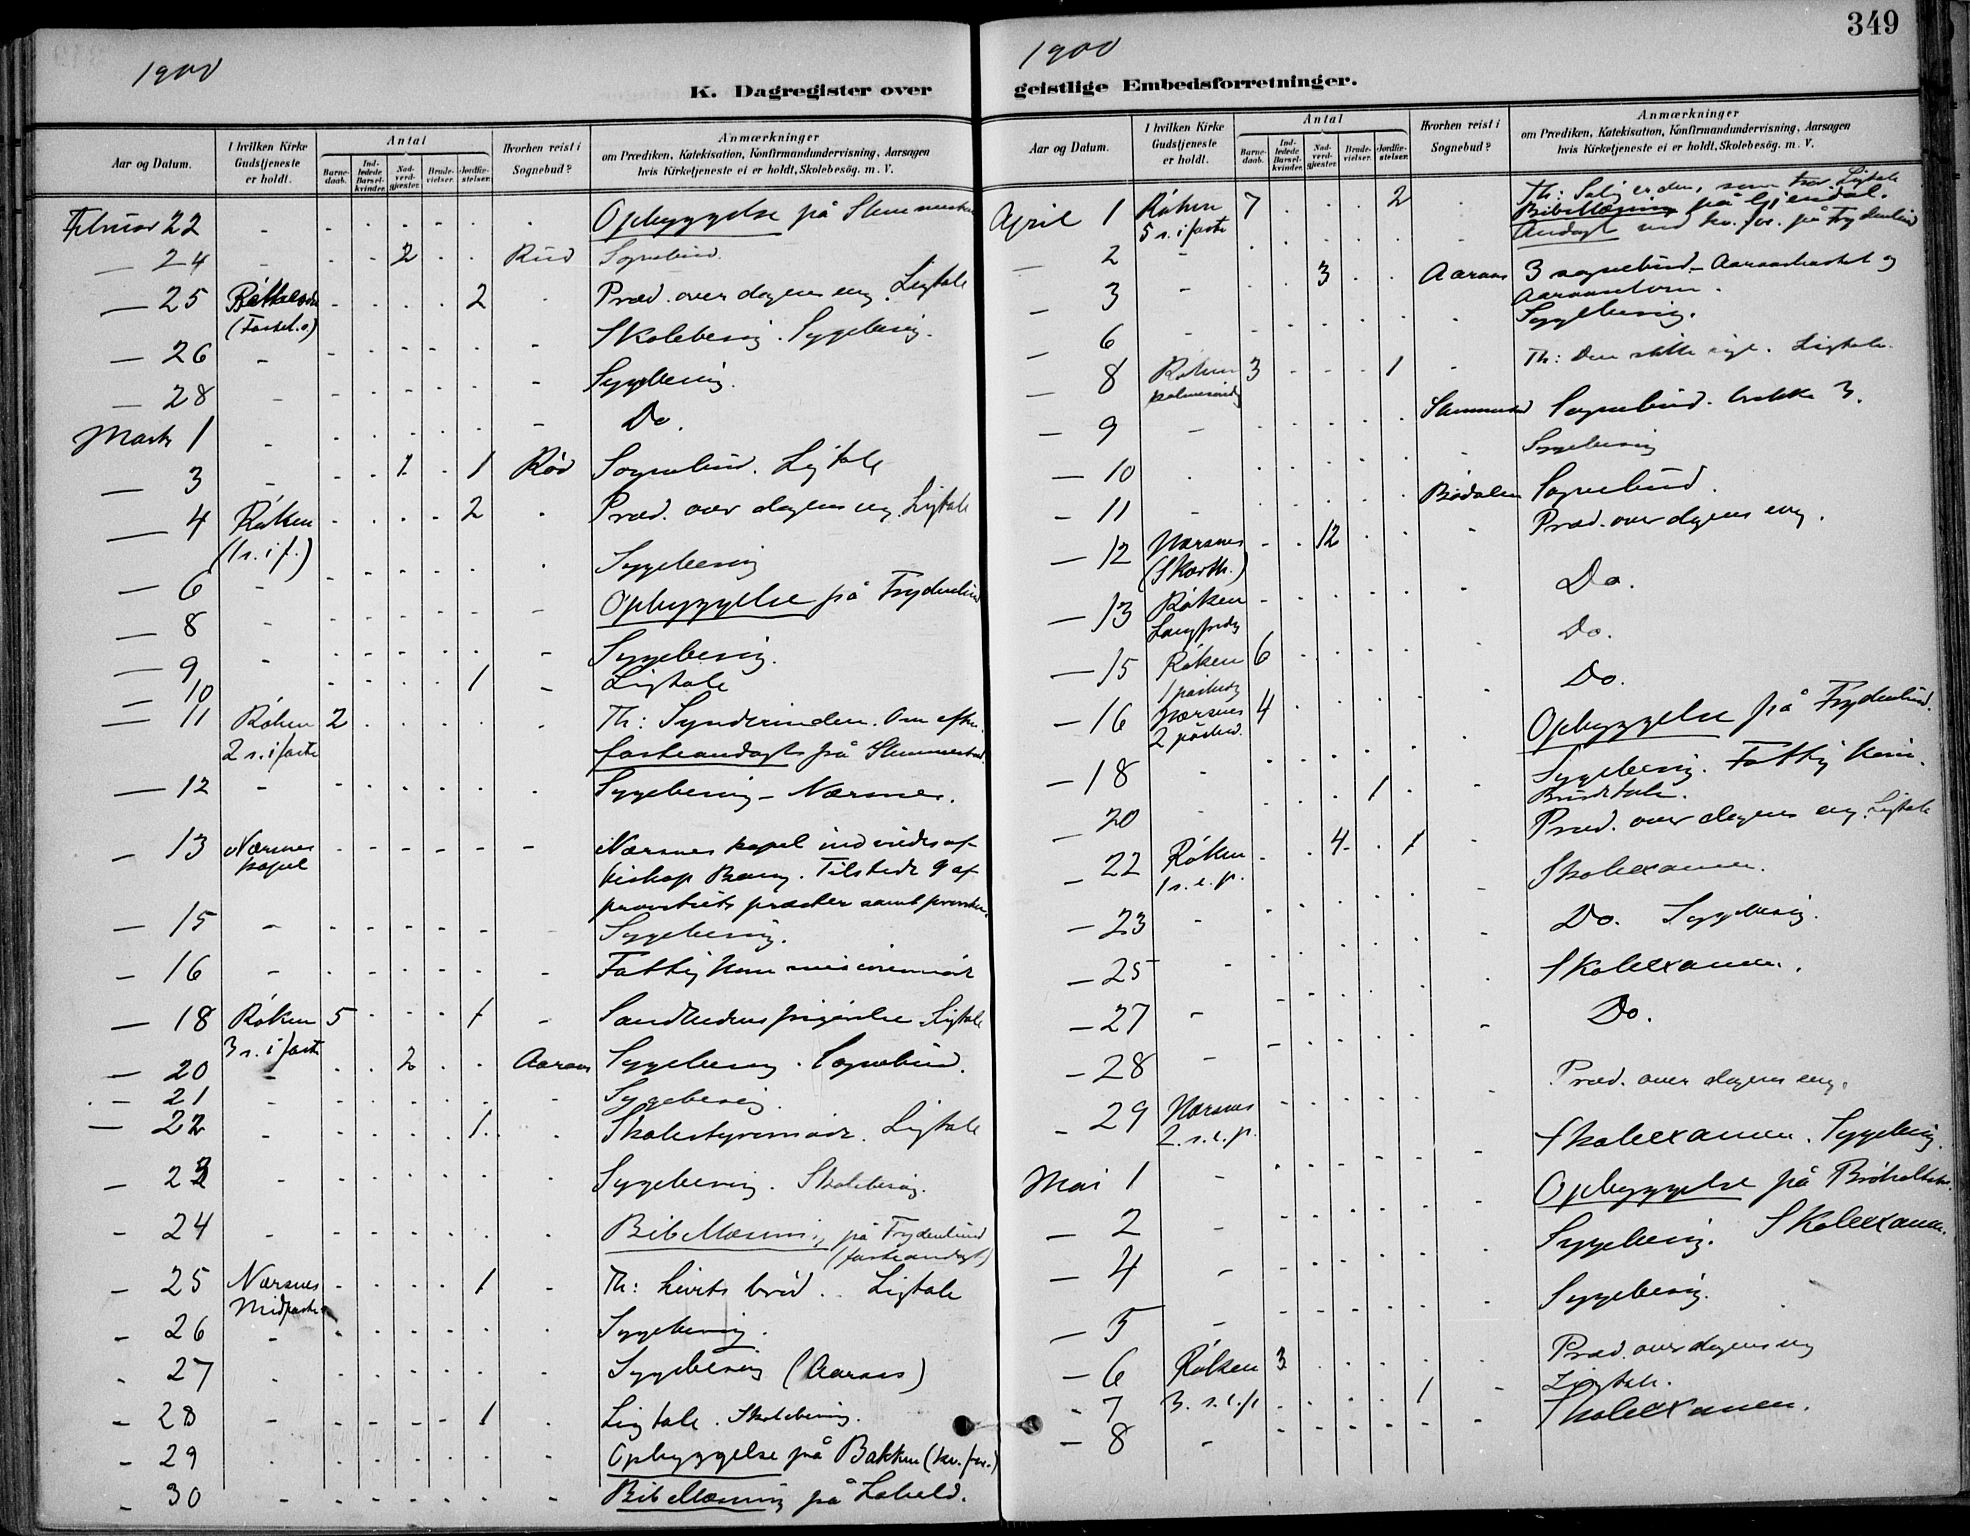 349
1900
K. Dagregister over
Aar og Datum.
I hvilken Kirke Gudstjeneste er holdt.
Antal
Barne-daab.
Ind-ledede Barsel-kvinder.
Nad-verd-gjester.
Brude-vielser.
Jordfæ-stelser.
Hvorhen reist i Sognebud?
Anmærkninger
om Prædiken, Katekisation, Konfirmandundervisning, Aarsagen
hvis Kirketjeneste ei er holdt, Skolebesög. m. V.
Februar 22 - - - - - - Opbyggelse på
— 24 - - - 2 - - Rud Sognebud
— 25 - - - - 2 - Præd. over dagens evg. Ligtale
(Fastel. s)
— 26 - - - - - - Skolebesøg. Sygebesøg.
— 28 - - - - - - Sygebesøg.
Marts 1 - - - - - - Do.
— 3 - - - 1 - 1 Rød Sognebud. Ligtale
— 4 Røken - - - - 2 - Præd. over dagens evg. Ligtale
(1 s. i f.)
— 6 - - - - - - Sygebesøg
— 8 - - - - - - Opbyggelse på Frydenlund
— 9 - - - - - - Sygebesøg.
— 10 - - - - 1 - Ligtale
— 11 Røken 2 - - - - - Th: Synderinden. Om efm.
2 s. i faste fasteandagt på Slemmestad
— 12 - - - - - - Sygebesøg - Nærsnes.
— 13 Nærsnes - - - - - - Nærsnes kapel indviedes af
kapel biskop Bang. Tilstede 9 af
provstiets præster samt provsten.
— 15 - - - - - - Sygebesøg.
— 16 - - - - - - Fattigkommissionsmøde
— 18 Røken 5 - - - 1 - Sandhedens frigørelse. Ligtale
3 s. i faste
— 20 - - - 2 - - Aaraas Sygebesøg. Sognebud.
— 21 - - - - - - Sygebesøg.
— 22 - - - - 1 - Skolestyremøde. Ligtale
— 23 - - - - - - Sygebesøg. Skolebesøg.
— 24 - - - - - - Bibellæsning på Frydenlund
(fasteandagt)
— 25 Nærsnes - - - - 1 - Th: Livets brød. Ligtale
Midfaste
— 26 - - - - - - Sygebesøg.
— 27 - - - - - - Sygebesøg (Aaraas)
— 28 - - - - 1 - Ligtale. Skolebesøg.
— 29 - - - - - - Opbyggelse på Bakken (kv. for.)
— 30 - - - - - - Bibellæsning på
1900
geistlige Embedsforretninger.
Aar og Datum.
I hvilken Kirke Gudstjeneste er holdt.
Antal
Barne-daab.
Ind-ledede Barsel-kvinder.
Nad-verd-gjester.
Brude-vielser.
Jordfæ-stelser.
Hvorhen reist i Sognebud?
Anmærkninger
om Prædiken, Katekisation, Konfirmandundervisning, Aarsagen
hvis Kirketjeneste ei er holdt, Skolebesög. m. V.
April 1 Røken 7 - - - 2 - Th: Salig er den, som tror. Ligtale
5 s. i faste Bibellæsning på Gjerdal.
— 2 - - - - - - Andagt ved kv. for. på Frydenlund
— 3 - - - 3 - - Aaraas 3 sognebud - og
— 6 - - - - - - Sygebesøg.
— 8 Røken 3 - - - 1 - Th: Den stille uge. Ligtale.
palmesøndag
— 9 - - - - - Sognebud. 3.
— 10 - - - - - - Sygebesøg
— 11 - - - - - Bødalen Sognebud.
— 12 Nærsnes - - 12 - - - Præd. over dagens evg.
(Skærth.)
— 13 Røken - - - - - - Do.
Langfredag
— 15 Røken 6 - - - - - Do.
1 påskedag
— 16 Nærsnes 4 - - - - - Do.
2 påsked.
— 18 - - - - - - Opbyggelse på Frydenlund.
— 20 - - - - 1 - - Sygebesøg. Fattigkom.
Brudetale.
— 22 Røken - - 4 - 1 - Præd. over dagens evg. Ligtale
1 s. e. p.
— 23 - - - - - - Skoleexamen.
— 25 - - - - - - Do. Sygebesøg.
— 27 - - - - - - Skoleexamen.
— 28 - - - - - - Do.
— 29 Nærsnes - - - - - - Præd. over dagens evg.
2. s. e. p.
Mai 1 - - - - - - Skoleexamen. Sygebesøg.
— 2 - - - - - - Opbyggelse på
— 4 - - - - - - Sygebesøg. Skoleexamen.
— 5 - - - - - - Sygebesøg.
— 6 Røken 3 - - - - - Præd. over dagens evg
— 7 3. s. e. p. - - - - 1 - Ligtale.
— 8 - Skoleexamen.